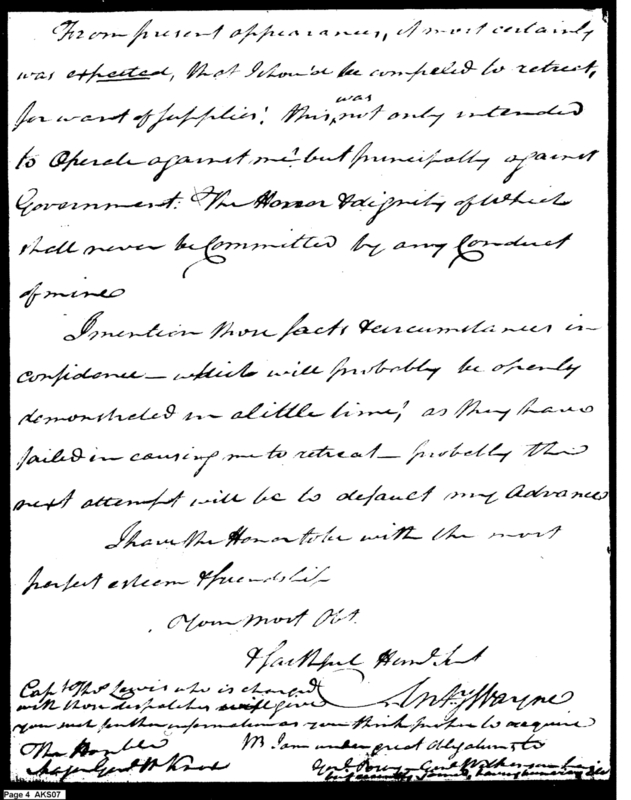 From present appearances, it most certainly
was expected, that I shou'd be compeled to retreat,
for want of supplies; this, was not only intended
to Operate against me; but principally against
Government. The Honor & dignity of Which
shall never be Committed by any Conduct
of mine
I mention those facts & circumstances in
confidence — which will probably be openly
demonstrated in a little time; as they have
failed in causing me to retreat — probably the
next attempt will be to my Advance
I have the Honor to be with the most
perfect esteem & friendship
Your Most Obt.
& faithful Huml. Sert
Capt. Thos. Lewis who is charged
with those dispatches will give
Anty. Wayne
you such further information as you think proper to require
The Honble
NB I am under great Obligations to
Major Genl. H Knox
Genl. Genl. Wilkerson having
Page 4 AKS07